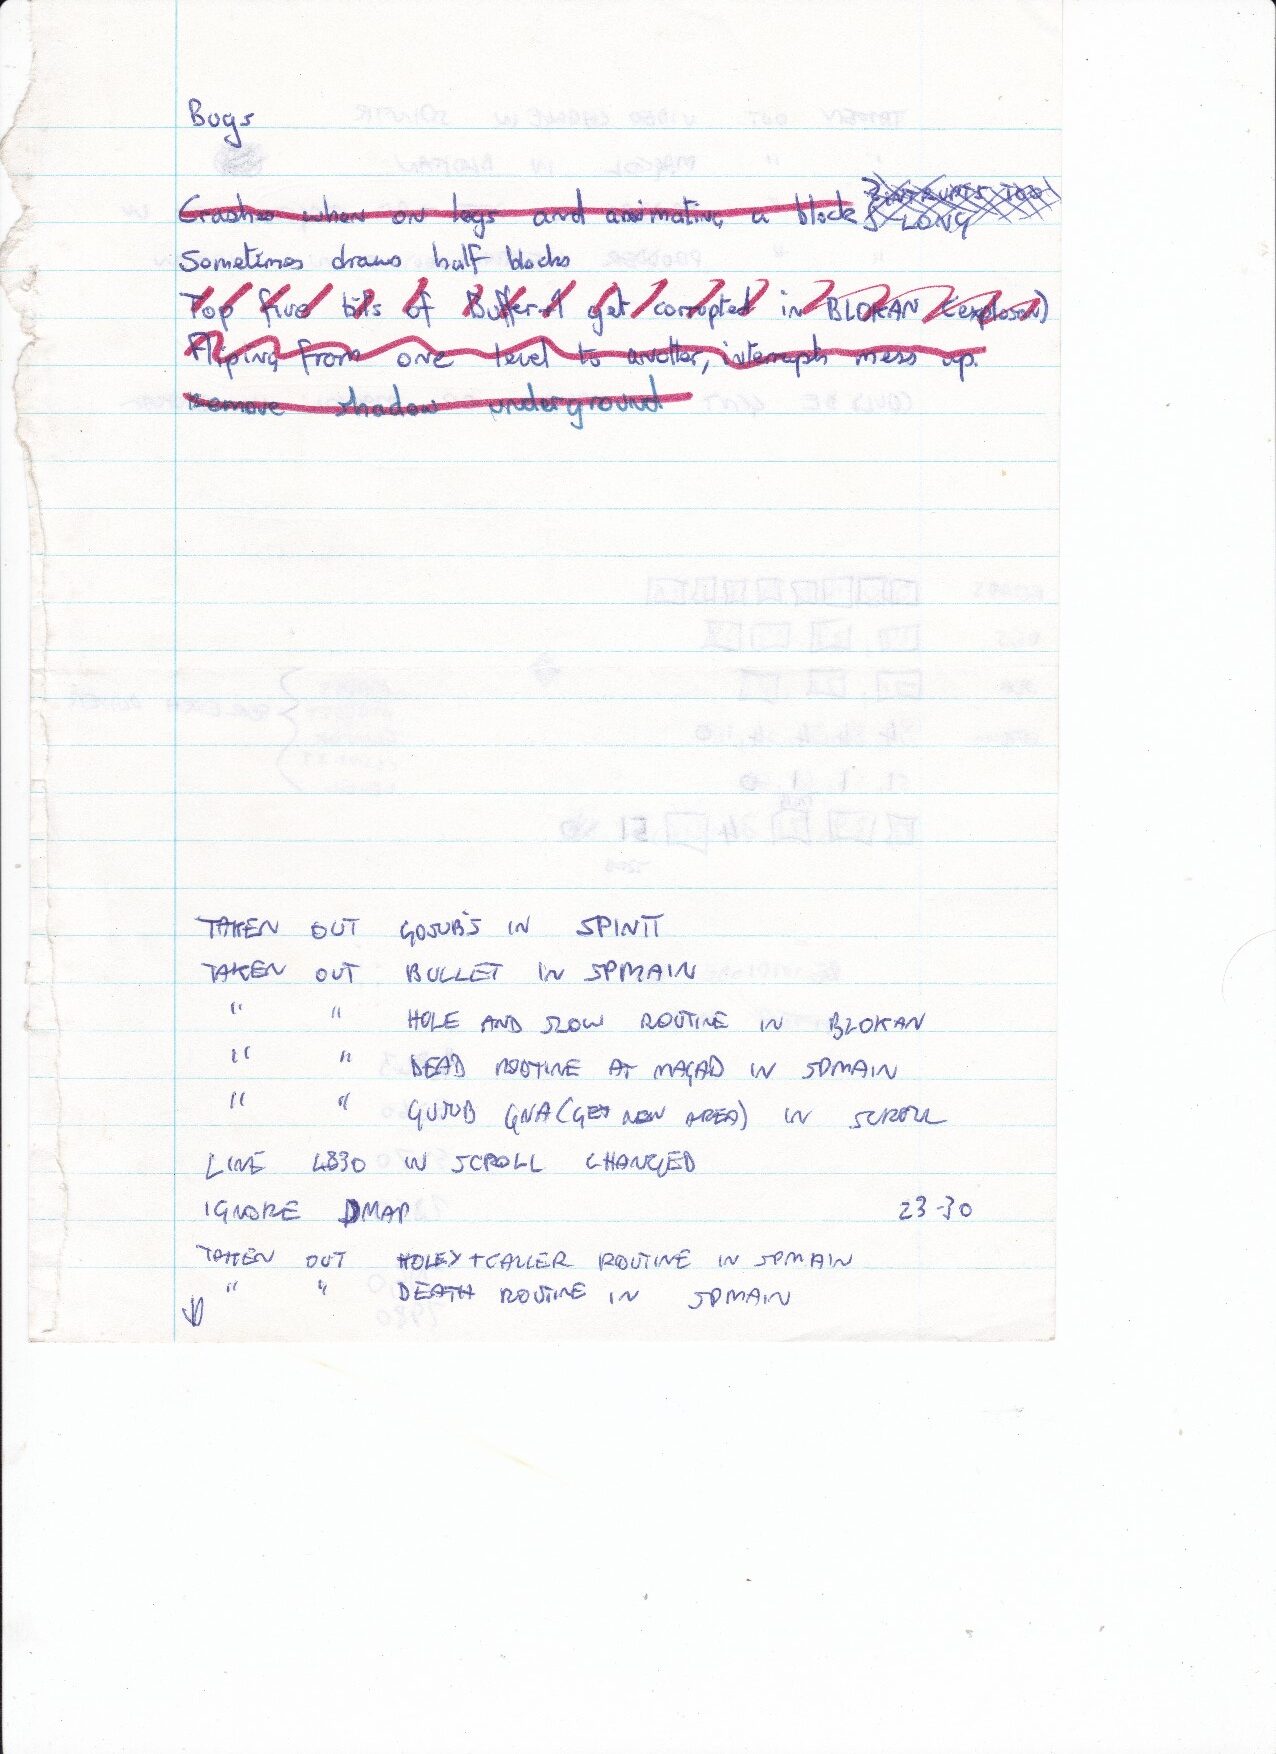 Bugs
Crashes when on legs and animating a block } INTRUPTS TOO
LONG
Sometimes draws half blocks
Top five bits of Buffer-A get corrupted in BLOKAN (exploson)
Fliping from one level to another, interrupts mess up.
Remove shadow underground
TAKEN OUT GOSUB'S IN SPINTT
TAKEN OUT BULLET IN SPMAIN
" " HOLE AND SLOW ROUTINE IN BLOKAN
" " DEAD ROUTINE AT MAGAD IN SPMAIN
" " GOSUB GNA (GET NEW AREA) IN SCROLL
LINE 4830 IN SCROLL CHANGED
IGNORE DMAP 23-30
TAKEN OUT HOLEY+CALLER ROUTINE IN SPMAIN
" " DEATH ROUTINE IN SPMAIN